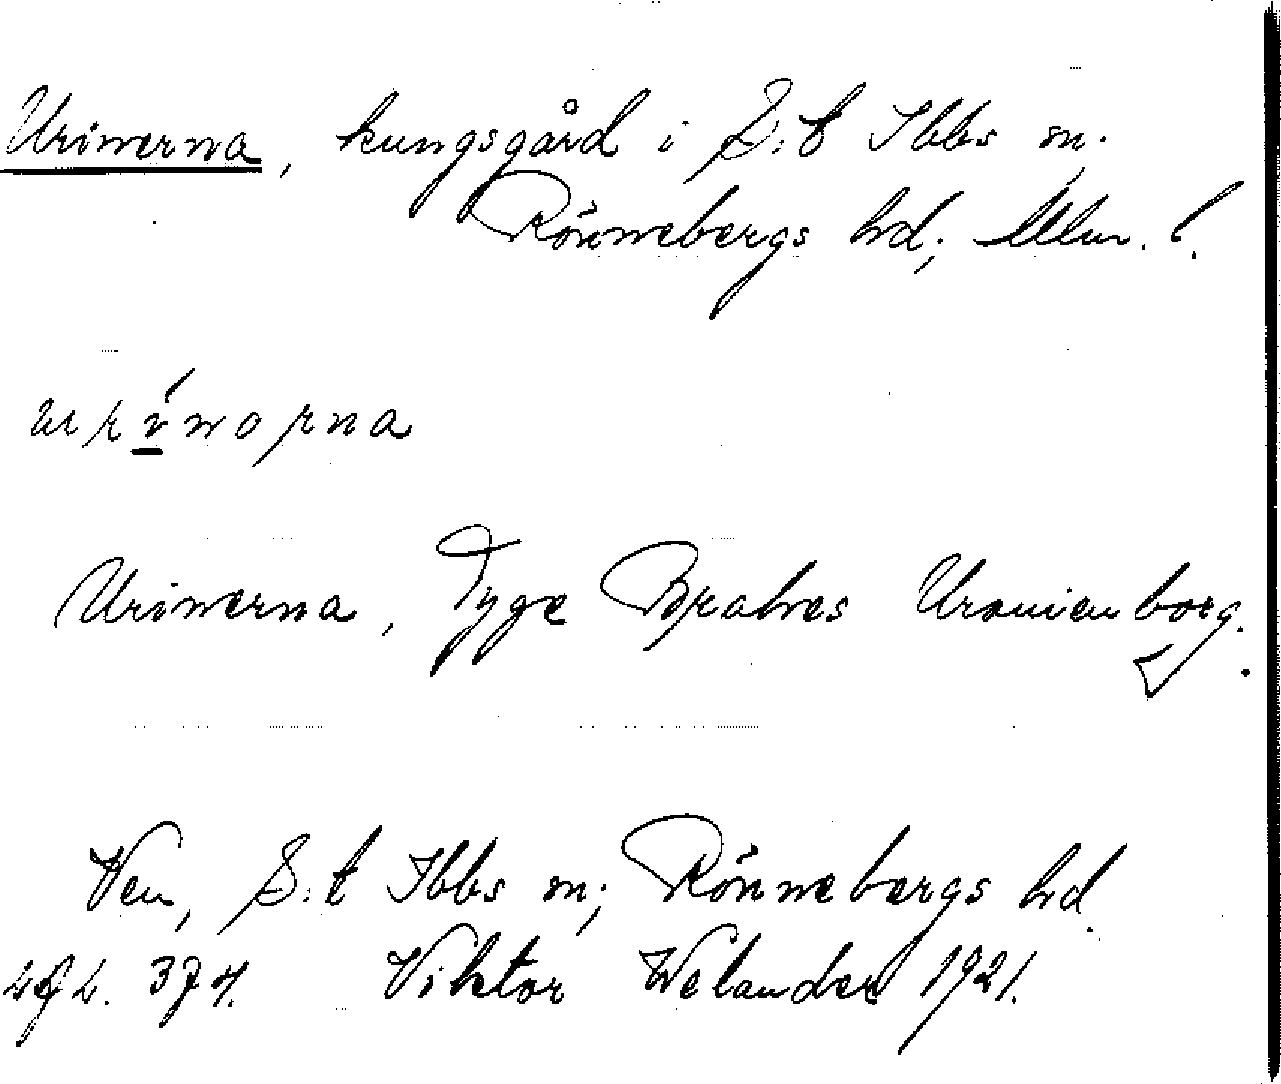 Urinerna, kungsgård i S:t Ibbs sn.
Rönnebergs hd, Mlm. l.
Urinerna, Tyge Brahes Uranienborg.
Ven, S:t Ibbs sn; Rönnebergs hd.
Viktor Welander 1921.